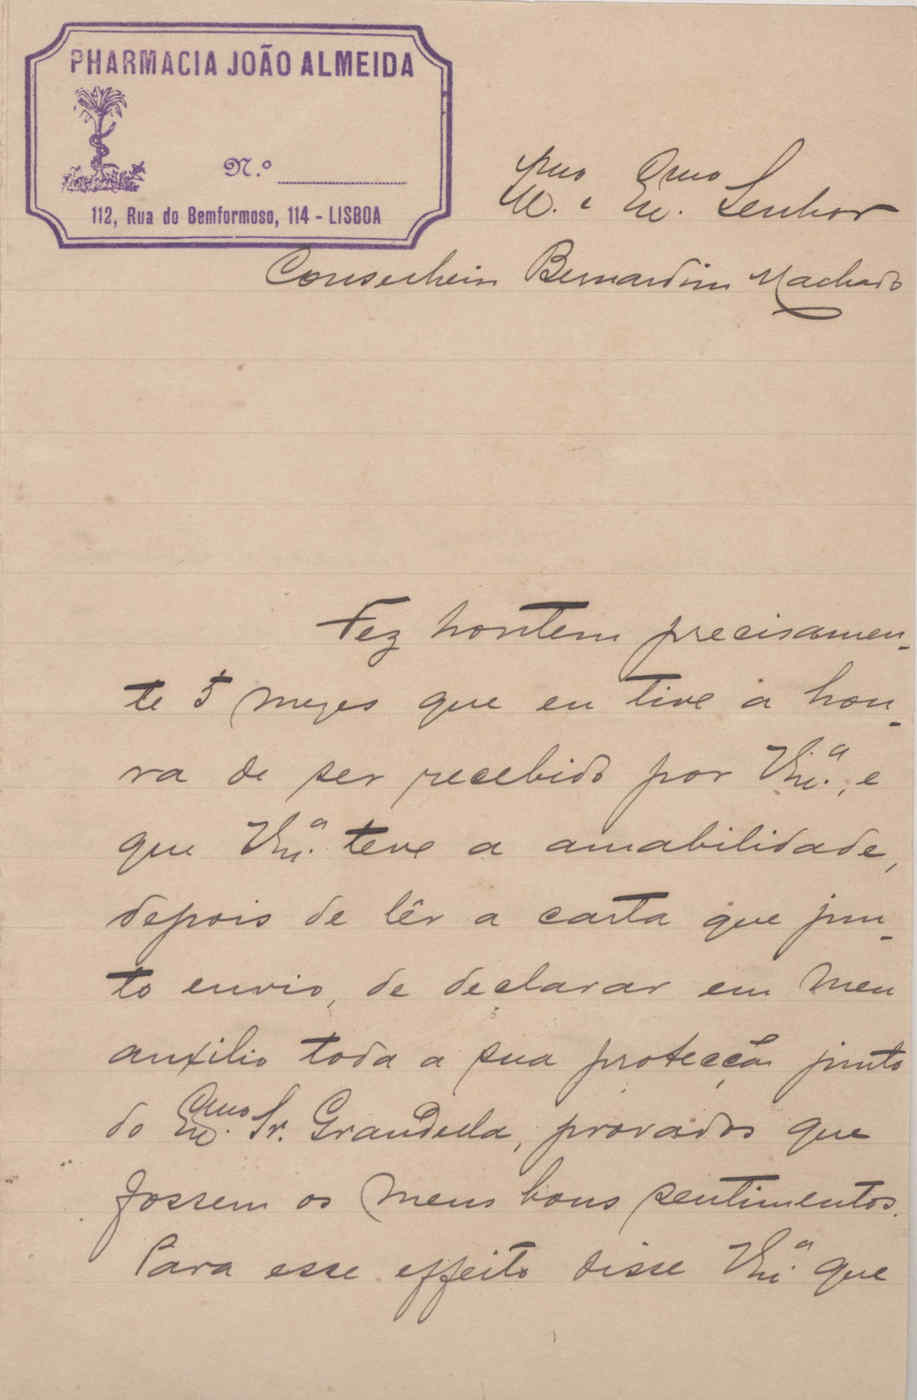 PHARMACIA JOÃO ALMEIDA
N.º
112, Rua do Bemformoso, 114 - LISBOA
Illmo. e Exmo. Senhor
Conselheiro Bernardino Machado
Fez hontem precisamen-
te 5 mezes que eu tive a hon-
ra de ser recebido por V. Ex.ª, e
que V. Ex.ª teve a amabilidade,
depois de lêr a carta que jun-
to envio, de declarar em meu
auxilio toda a sua protecção junto
do Exmo. Sr. Grandella, provados que
fossem os meus bons sentimentos.
Para esse effeito disse V. Ex.ª que